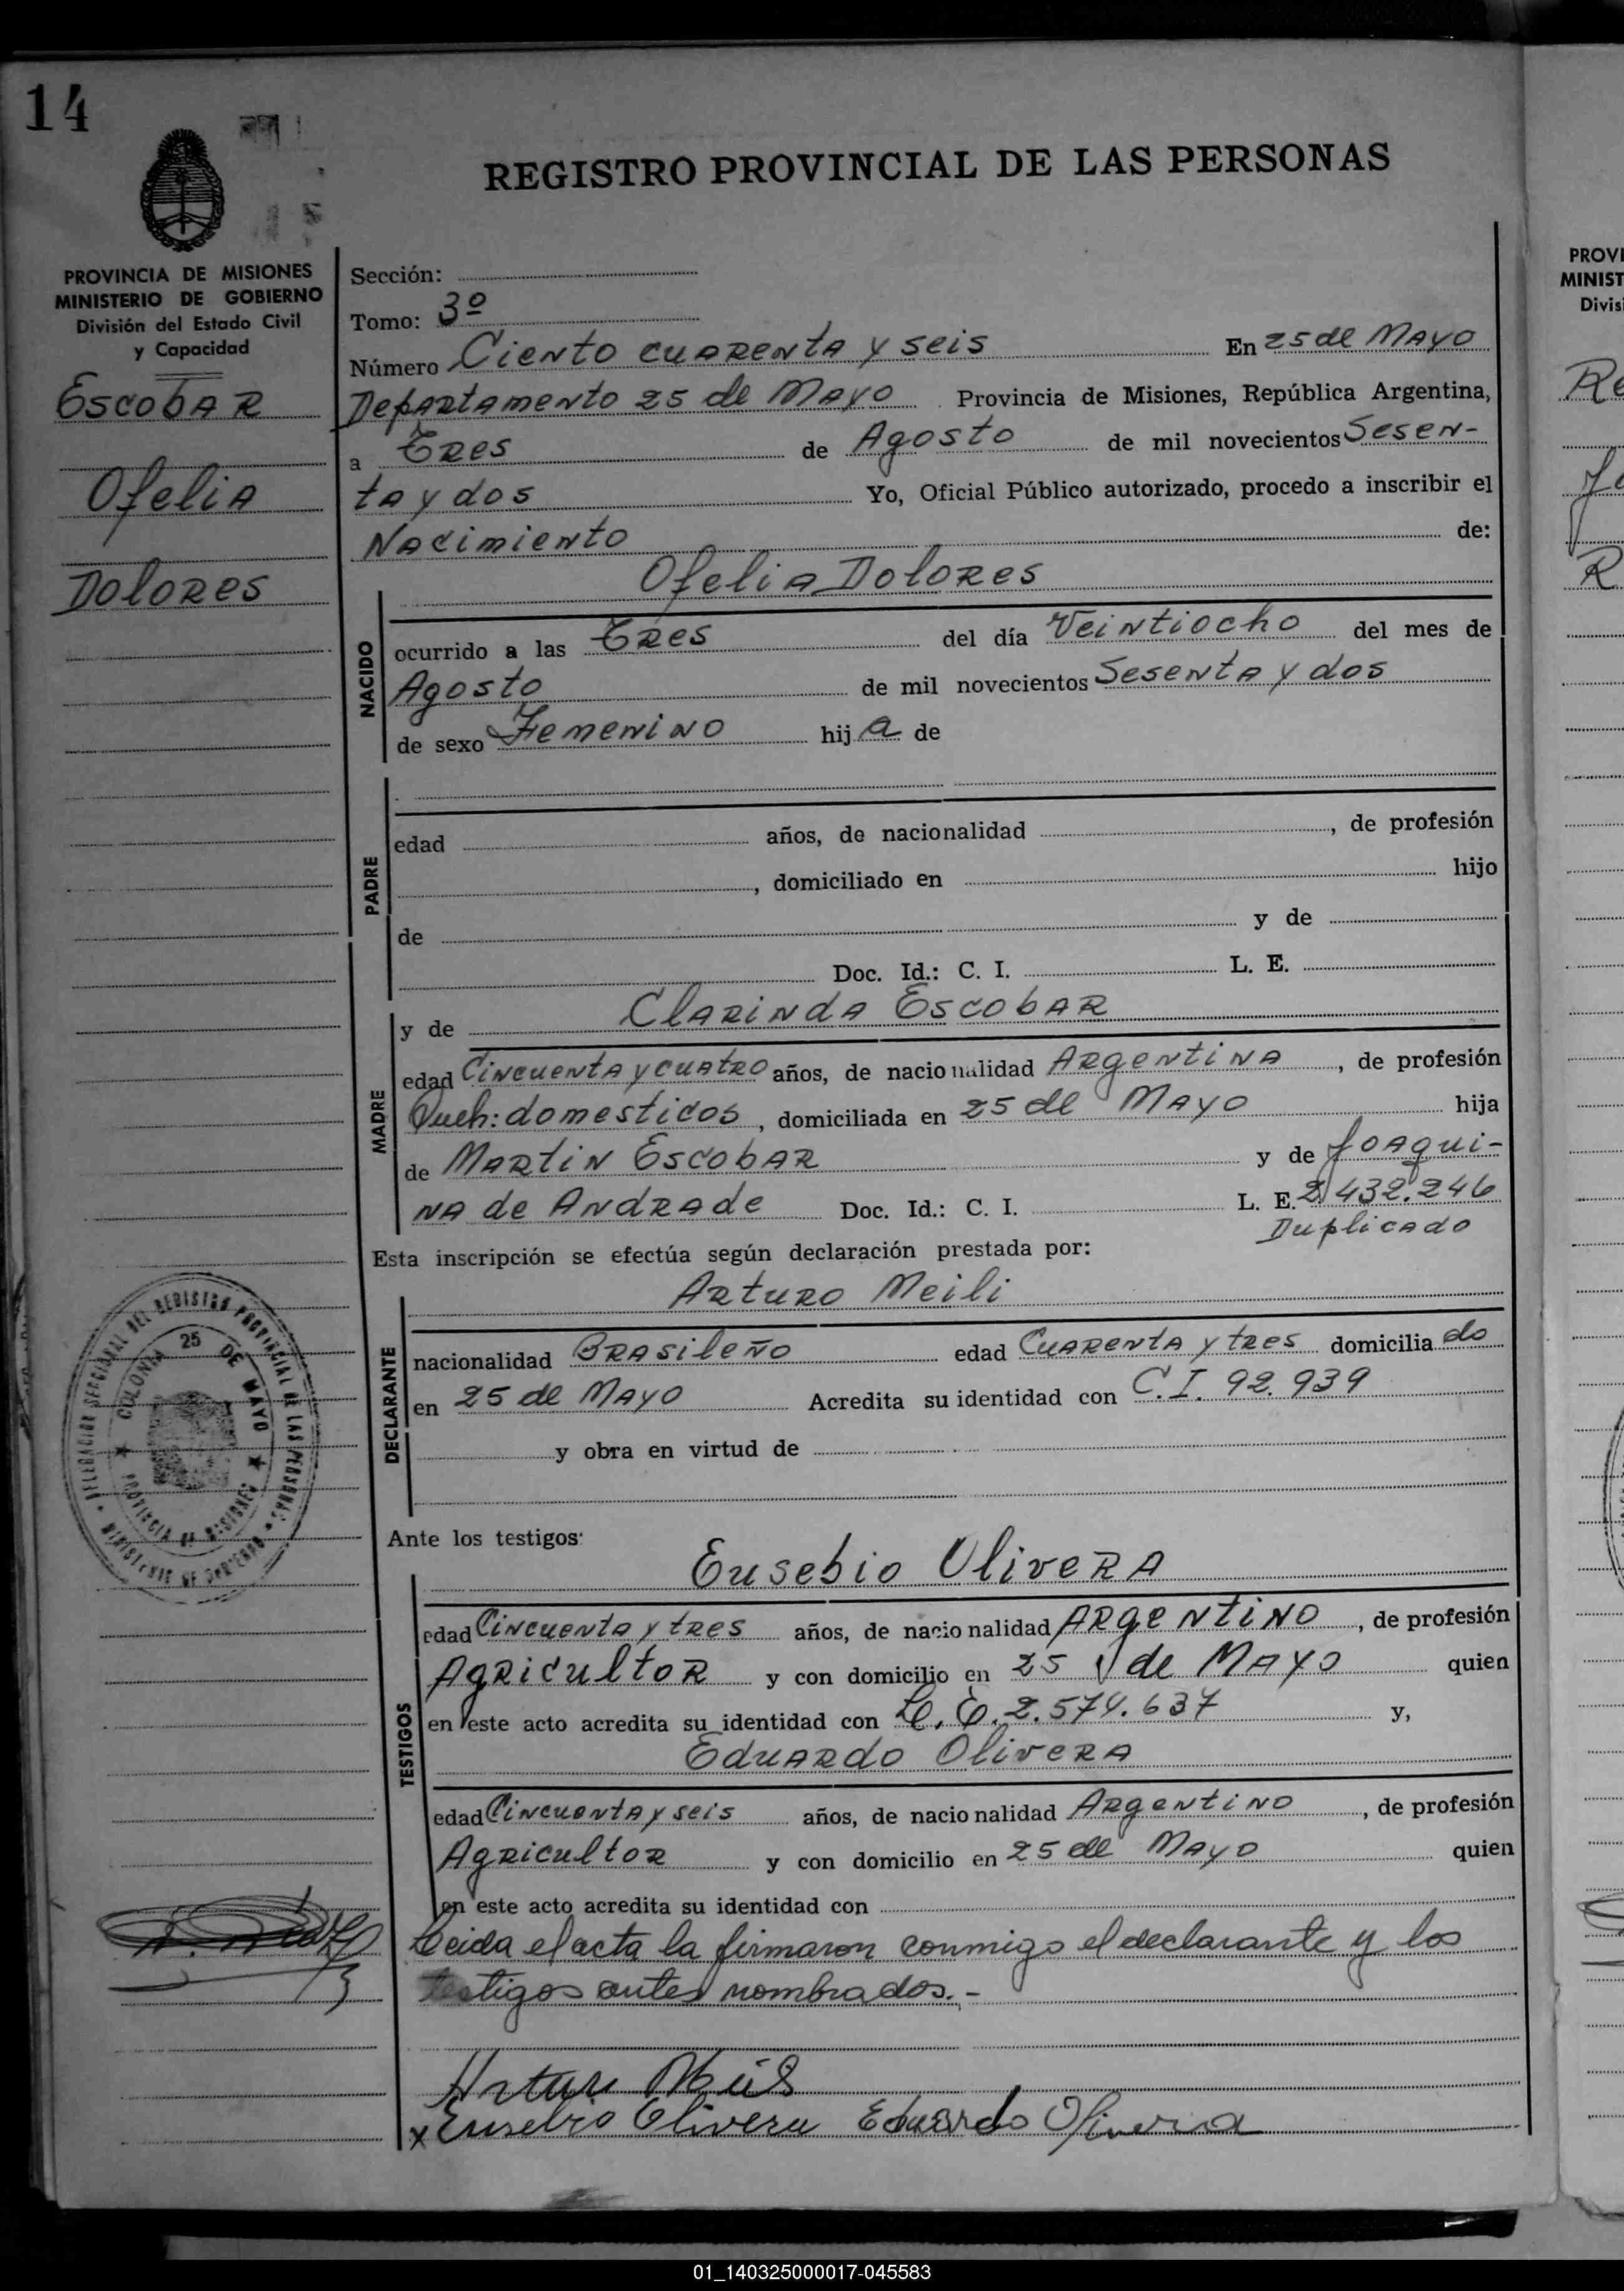 14
REGISTRO PROVINCIAL DE LAS PERSONAS
PROVINCIA DE MISIONES
MINISTERIO DE GOBIERNO
División del Estado Civil
y Capacidad
Escobar
Ofelia
Dolores
Sección:
Tomo: 3º
Número Ciento cuarenta y seis En 25 de Mayo
Departamento 25 de Mayo Provincia de Misiones, República Argentina,
a Tres de Agosto de mil novecientos Sesen-
ta y dos Yo, Oficial Público autorizado, procedo a inscribir el
Nacimiento de:
Ofelia Dolores
NACIDO
ocurrido a las Tres del día Veintiocho del mes de
Agosto de mil novecientos Sesenta y dos
de sexo Femenino hij a de
PADRE
edad años, de nacionalidad , de profesión
, domiciliado en hijo
de y de
Doc. Id.: C. I. L. E.
MADRE
y de Clarinda Escobar
edad Cincuenta y cuatro años, de nacionalidad Argentina , de profesión
Queh: domesticos , domiciliada en 25 de Mayo hija
de Martin Escobar y de Joaqui-
na de Andrade Doc. Id.: C. I. L. E. 2.432.246
Duplicado
Esta inscripción se efectúa según declaración prestada por:
DECLARANTE
Arturo Meili
nacionalidad Brasileño edad Cuarenta y tres domicilia do
en 25 de Mayo Acredita su identidad con C.I. 92.939
y obra en virtud de
DELEGACION SECCIONAL DEL REGISTRO PROVINCIAL DE LAS PERSONAS
MINISTERIO DE GOBIERNO
COLONIA 25 DE MAYO
PROVINCIA DE MISIONES
Ante los testigos:
TESTIGOS
Eusebio Olivera
edad Cincuenta y tres años, de nacionalidad Argentino , de profesión
Agricultor y con domicilio en 25 de Mayo quien
en este acto acredita su identidad con L.E. 2.574.637 y,
Eduardo Olivera
edad Cincuenta y seis años, de nacionalidad Argentino , de profesión
Agricultor y con domicilio en 25 de Mayo quien
en este acto acredita su identidad con
Leida el acta la firmaron conmigo el declarante y los
testigos antes nombrados.-
Arturo Meili
x Eusebio Olivera Eduardo Olivera
PROVI
MINIST
Divis
Re
R
01_140325000017-045583